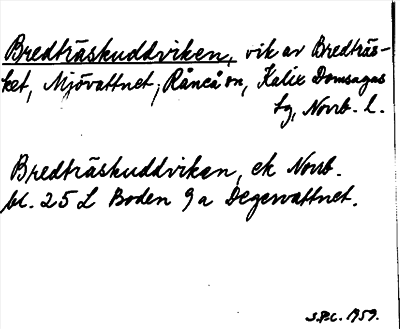 Bredträskuddviken, vik av Bredträs-
ket, Mjövattnet, Råneå sn, Kalix Domsagas
tg, Norrb. l.
Bredträskuddviken, ek Norrb.
bl. 25 L Boden 9 a Degervattnet.
1959.